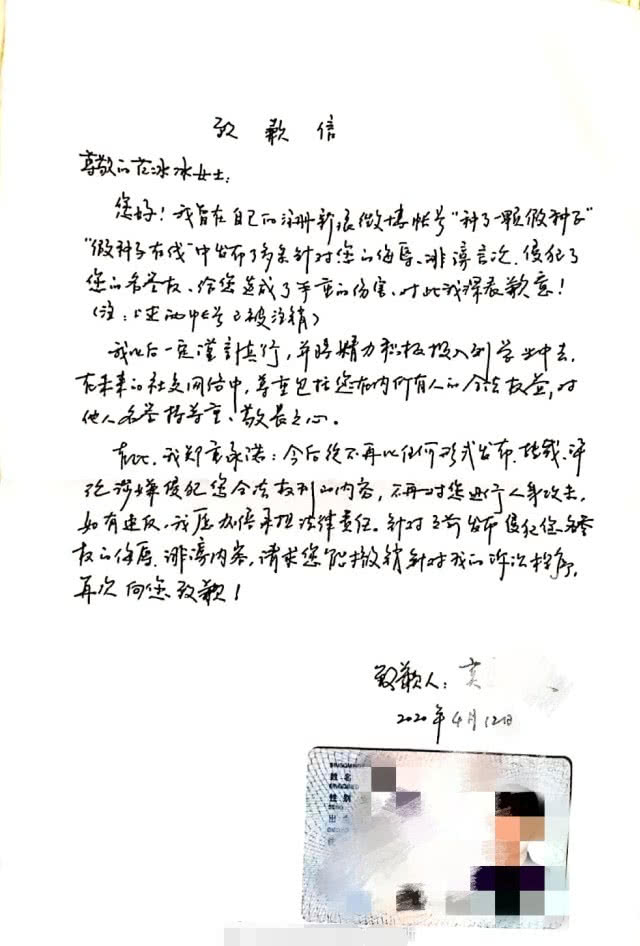 致歉信
尊敬的范冰冰女士:
您好!我曾在自己的注册新浪微博帐号“种了一颗假种子”
“假种子在线”中发布了多条针对您的侮辱、诽谤言论,侵犯了
您的名誉权、给您造成了严重的伤害,对此我深表歉意!
(注:上述两帐号已被注销)
我以后一定谨言慎行,并将精力积极投入到学业中去,
在未来的社交网络中,尊重包括您在内所有人的合法权益,对
他人名誉持尊重、敬畏之心。
在此,我郑重承诺:今后绝不再以任何形式发布、转载、评
论涉嫌侵犯您合法权利的内容,不再对您进行人身攻击,
如有违反,我愿加倍承担法律责任。针对之前发布侵犯您名誉
权的侮辱、诽谤内容,请求您能撤销针对我的诉讼程序,
再次向您致歉!
致歉人:
2020年4月12日
姓名
性别
出